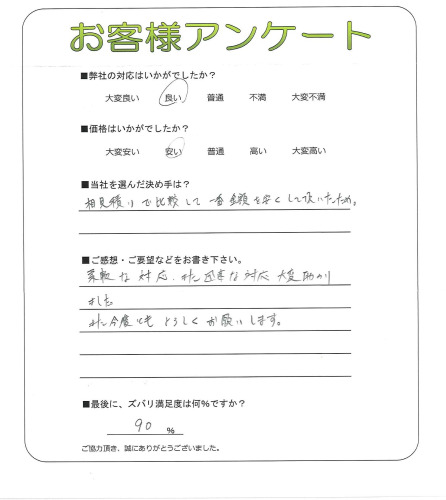 お客様アンケート
■弊社の対応はいかがでしたか?
大変良い 良い 普通 不満 大変不満
■価格はいかがでしたか?
大変安い 安い 普通 高い 大変高い
■当社を選んだ決め手は?
相見積りで比較して一番金額を安くして頂いたため。
■ご感想・ご要望などをお書き下さい。
柔軟な対応、また迅速な対応大変助かり
ました
また今度ともよろしくお願いします。
■最後に、ズバリ満足度は何%ですか?
90 %
ご協力頂き、誠にありがとうございました。